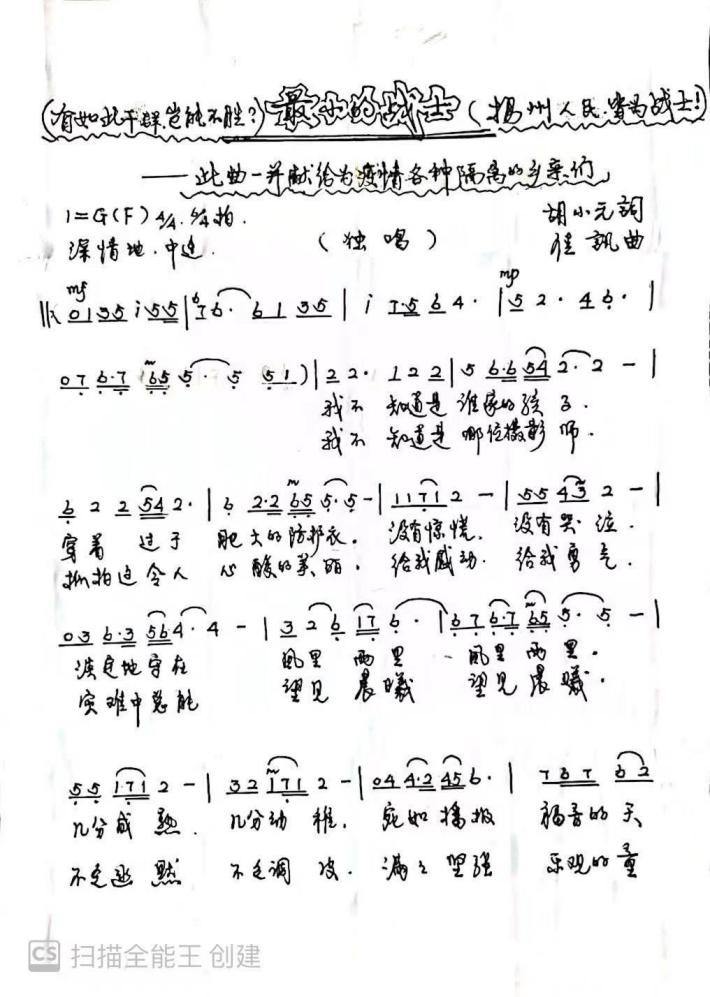 (有如此干群岂能不胜?) 最小的战士 (扬州人民,皆为战士!)
——此曲一并献给为疫情各种隔离的乡亲们
1=G(F) 4/4. 5/4拍. 胡小元詞
深情地.中速. (独唱) 佳訊曲
mf mp
0135 i55 | 76· 61 35 | i 75 6 4· | 5 2· 46· |
07 6·7 165 5· 5 51) | 2 2· 122 | 5 6·6 54 2· 2 - |
我不 知道是 谁家的孩子.
我不 知道是 哪位摄影师.
6 2 2 54 2· | 6· 2·2 65 5·5 - | 1171 2 - | 55 43 2 - |
穿着 过于 肥大的防护衣。 没有惊慌, 没有哭泣.
抓拍这令人 心酸的美丽. 给我感动. 给我勇气.
03 6·3 564· 4 - | 3 26 17 6· | 67 6·7 65 5· 5 - |
淡定地守在 风里 雨里 风里 雨里.
灾难中总能 望见 晨曦 望见 晨曦.
55 1·71 2 - | 32 171 2 - | 04 4·2 456· | 767 62
几分成熟. 几分幼稚. 宛如播散 福音的天
不乏幽默 不乏调皮. 满满坚强 乐观的童
CS 扫描全能王 创建